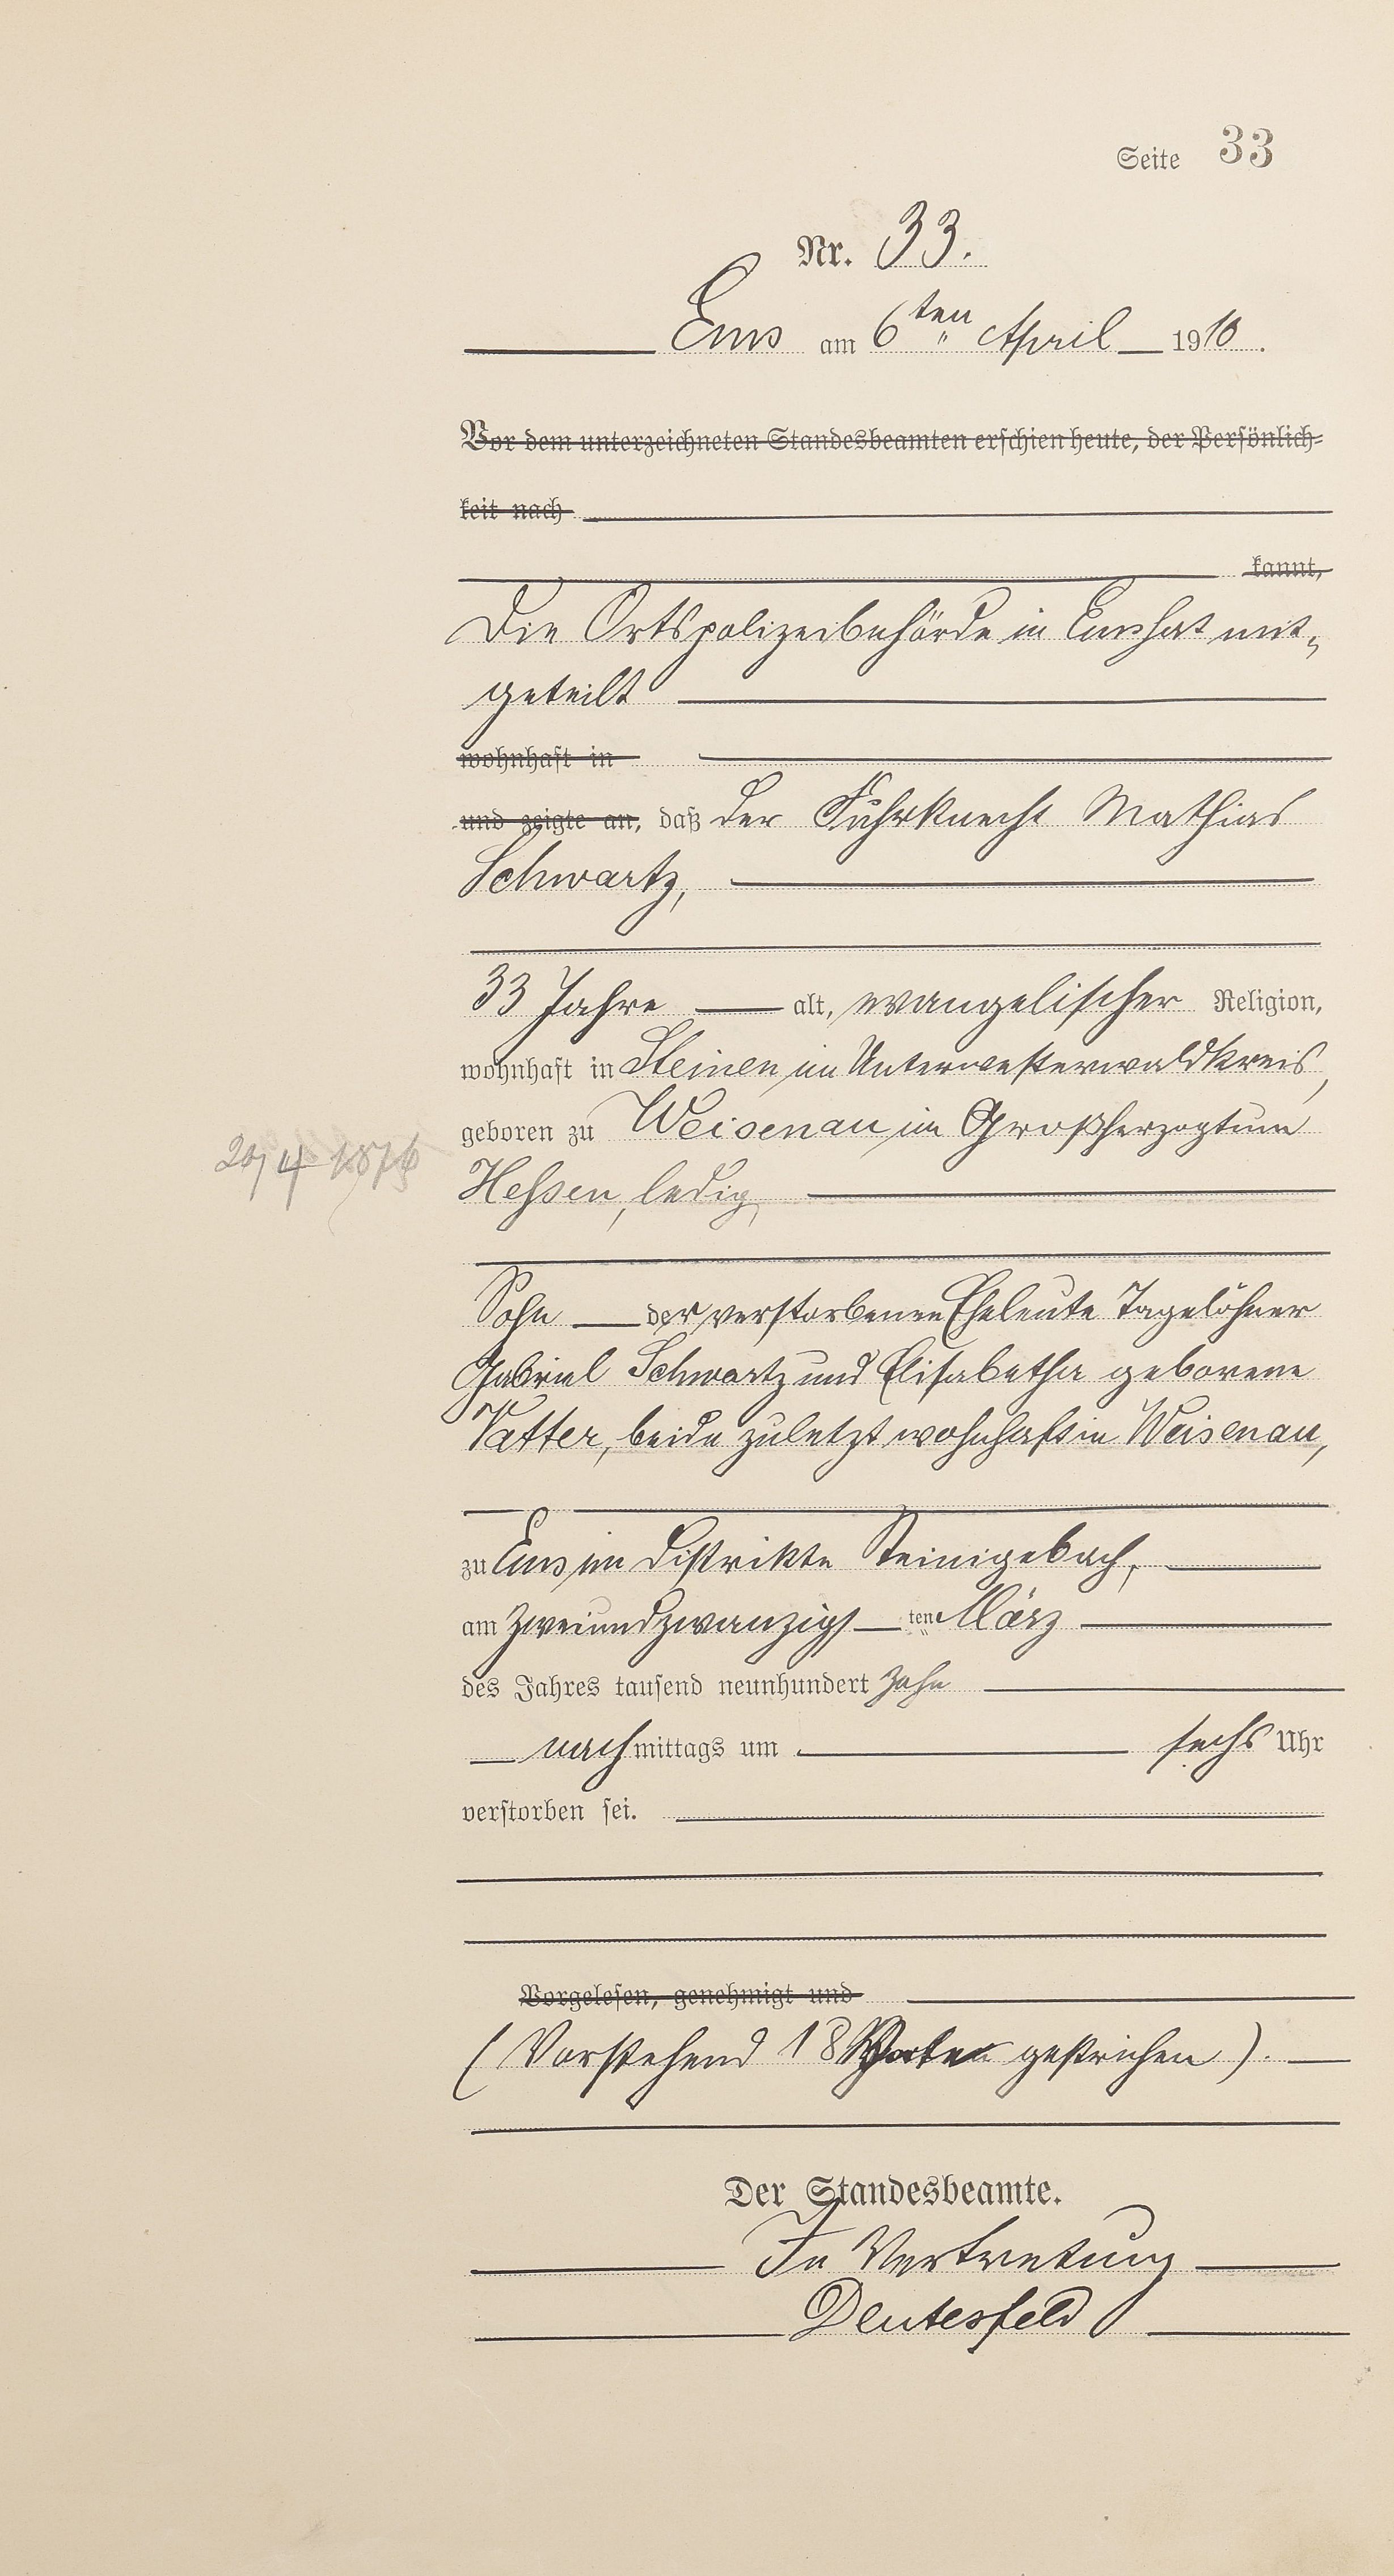 Seite 33
Nr. 33.
Ems am 6ten April 1910.
Vor dem unterzeichneten Standesbeamten erschien heute, der Persönlich-
keit nach
kannt,
Die Ortspolizeibehörde in Ems hat mit-
geteilt
wohnhaft in
und zeigte an, daß der Fuhrknecht Mathias
Schwartz,
33 Jahre alt, evangelischer Religion,
wohnhaft in Steinen im Unterwesterwaldkreis,
geboren zu Weisenau im Großherzogtum
20/4 1876
Hessen, ledig,
Sohn der verstorbenen Eheleute Tagelöhner
Gabriel Schwartz und Elisabetha geborene
Vatter, beide zuletzt wohnhaft in Weisenau,
zu Ems im Distrikte Steinigebach,
am zweiundzwanzigsten März
des Jahres tausend neunhundert zehn
nachmittags um sechs Uhr
verstorben sei.
Vorgelesen, genehmigt und
(Vorstehend 18 gestrichen).
Der Standesbeamte.
In Vertretung
Deutesfeld